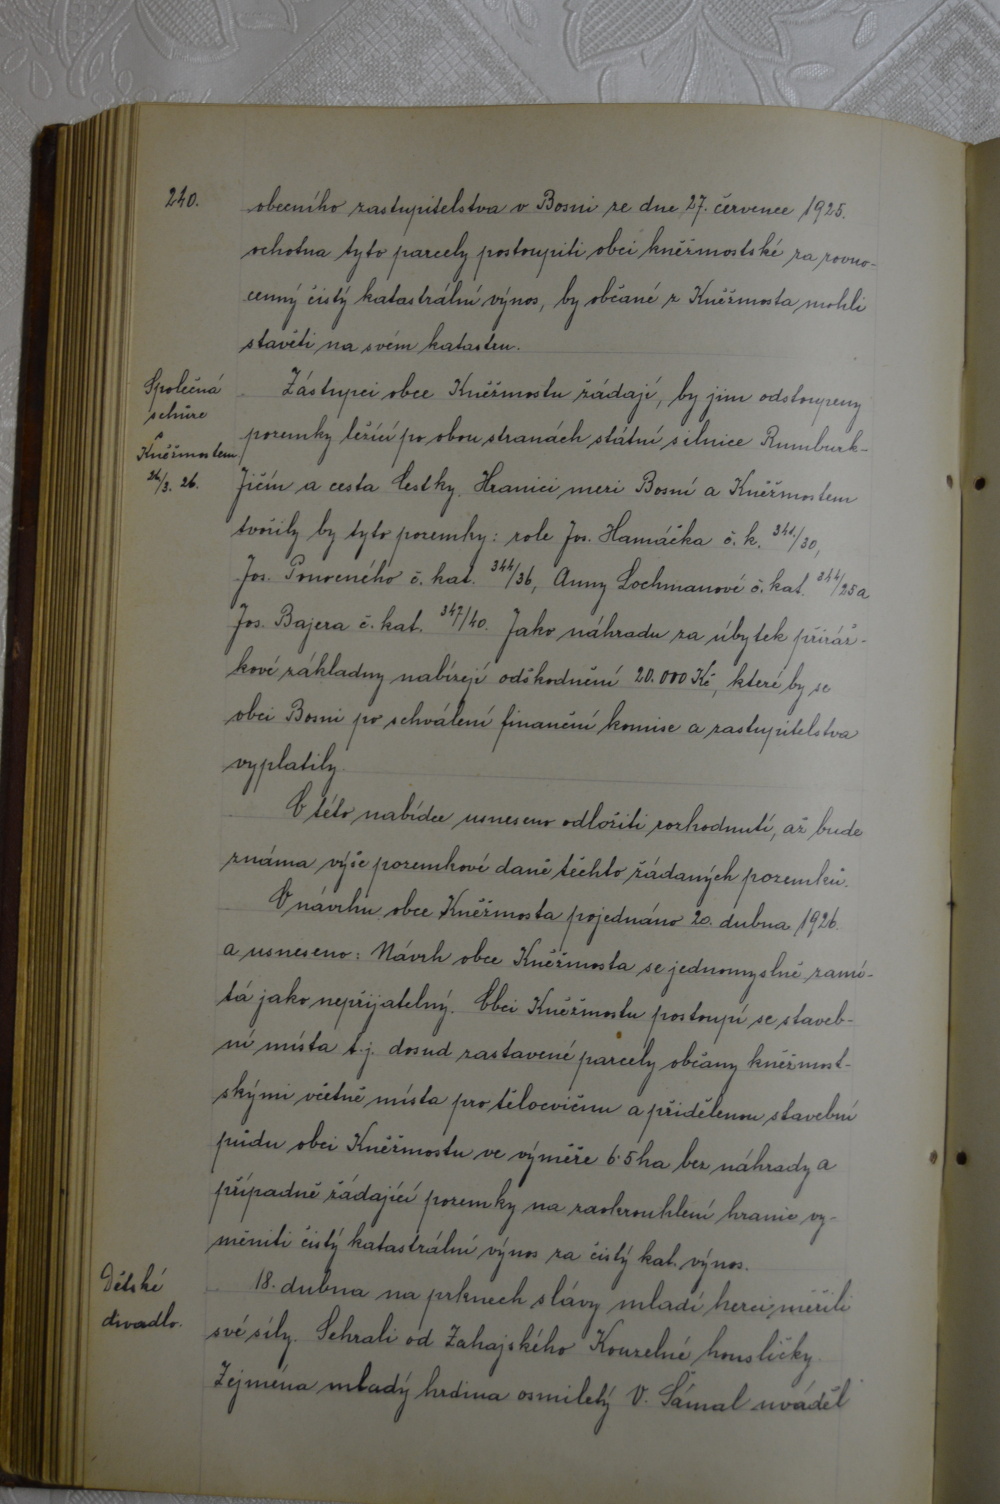 240.
obecního zastupitelstva v Bosni ze dne 27. července 1925.
ochotna tyto parcely postoupiti obci kněžmostské za rovno-
cenný čistý katastrální výnos, by občané z Kněžmosta mohli
stavěti na svém katastru.
Společná
schůze
s
Kněžmostem
26/3. 26.
Zástupci obce Kněžmostu žádají, by jim odstoupeny
pozemky ležící po obou stranách státní silnice Rumburk-
Jičín a cesta Lestky. Hranici mezi Bosní a Kněžmostem
tvořily by tyto pozemky: role Jos. Hamáčka č. k. 341/30,
Jos. Ponoceného č. kat. 344/36, Anny Lochmanové č. kat. 344/25 a
Jos. Bajera č. kat. 347/40. Jako náhradu za úbytek přiráž-
kové základny nabízejí odškodnění 20.000 Kč, které by se
obci Bosni po schválení finanční komise a zastupitelstva
vyplatily.
O této nabídce usneseno odložiti rozhodnutí, až bude
známa výše pozemkové daně těchto žádaných pozemků.
O návrhu obce Kněžmosta pojednáno 20. dubna 1926.
a usneseno: Návrh obce Kněžmosta se jednomyslně zamí-
tá jako nepřijatelný. Obci Kněžmostu postoupí se staveb-
ní místa t. j. dosud zastavené parcely občany kněžmost-
skými včetně místa pro tělocvičnu a přidělenou stavební
půdu obci Kněžmostu ve výměře 6·5 ha bez náhrady a
případně žádající pozemky na zaokrouhlení hranic vy-
měniti čistý katastrální výnos za čistý kat. výnos.
Dětské
divadlo.
18. dubna na prknech slávy mladí herci měřili
své síly. Sehráli od Zahajského Kouzelné housličky.
Zejména mladý hrdina osmiletý V. Šámal uváděl